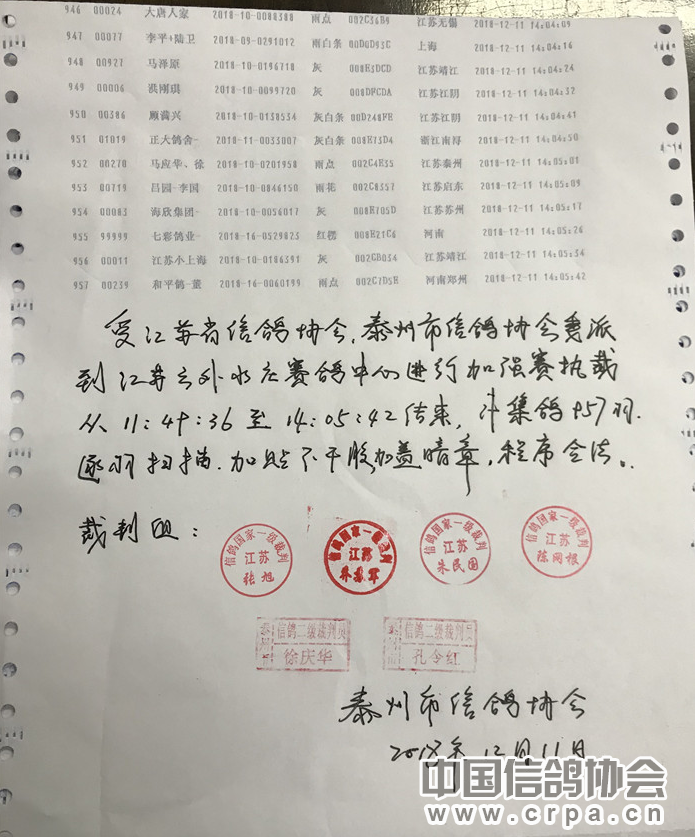 946 00024 大唐人家 2018-10-0088388 雨点 002C36B9 江苏无锡 2018-12-11 14:04:09
947 00077 李平+陆卫 2018-09-0291012 雨白条 00D6D93C 上海 2018-12-11 14:04:16
948 00927 马泽原 2018-10-0196718 灰 008E3DCD 江苏靖江 2018-12-11 14:04:24
949 00006 洪刚琪 2018-10-0099720 灰 008DFCDA 江苏江阴 2018-12-11 14:04:32
950 00386 顾满兴 2018-10-0130534 灰白条 00D248FE 江苏江阴 2018-12-11 14:04:41
951 01019 正大鸽舍- 2018-11-0033007 灰白条 008E73D4 浙江南浔 2018-12-11 14:04:50
952 00270 马应华、徐 2018-10-0201958 雨点 002C4E35 江苏泰州 2018-12-11 14:05:01
953 00719 吕园-李国 2018-10-0846150 雨花 002C8357 江苏启东 2018-12-11 14:05:09
954 00083 海欣集团- 2018-10-0056017 灰 008E705D 江苏苏州 2018-12-11 14:05:17
955 99999 七彩鸽业- 2018-16-0529823 红楞 008E21C6 河南 2018-12-11 14:05:26
956 00011 江苏小上海 2018-10-0186391 灰 002CB034 江苏靖江 2018-12-11 14:05:34
957 00239 和平鸽-董 2018-16-0060199 雨点 002C7D5E 河南郑州 2018-12-11 14:05:42
受江苏省信鸽协会,泰州市信鸽协会委派
到江苏云外水庄赛鸽中心进行加强赛执裁
从11:49:36至14:05:42结束,计集鸽957羽.
逐羽扫描.加贴不干胶加盖暗章,程序合法。
裁判组:
信鸽国家一级裁判 江苏 张旭
信鸽国家一级裁判 江苏
信鸽国家一级裁判 江苏 朱民国
信鸽国家一级裁判 江苏 陈网根
信鸽二级裁判员 徐庆华
信鸽二级裁判员 孔令红
泰州市信鸽协会
2018年12月11日
中国信鸽协会
www.crpa.cn